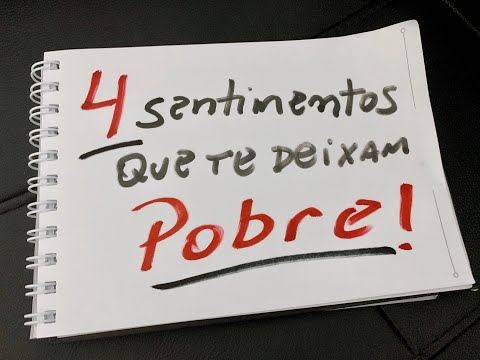 4 sentimentos
QUE TE DEIXAM
Pobre!